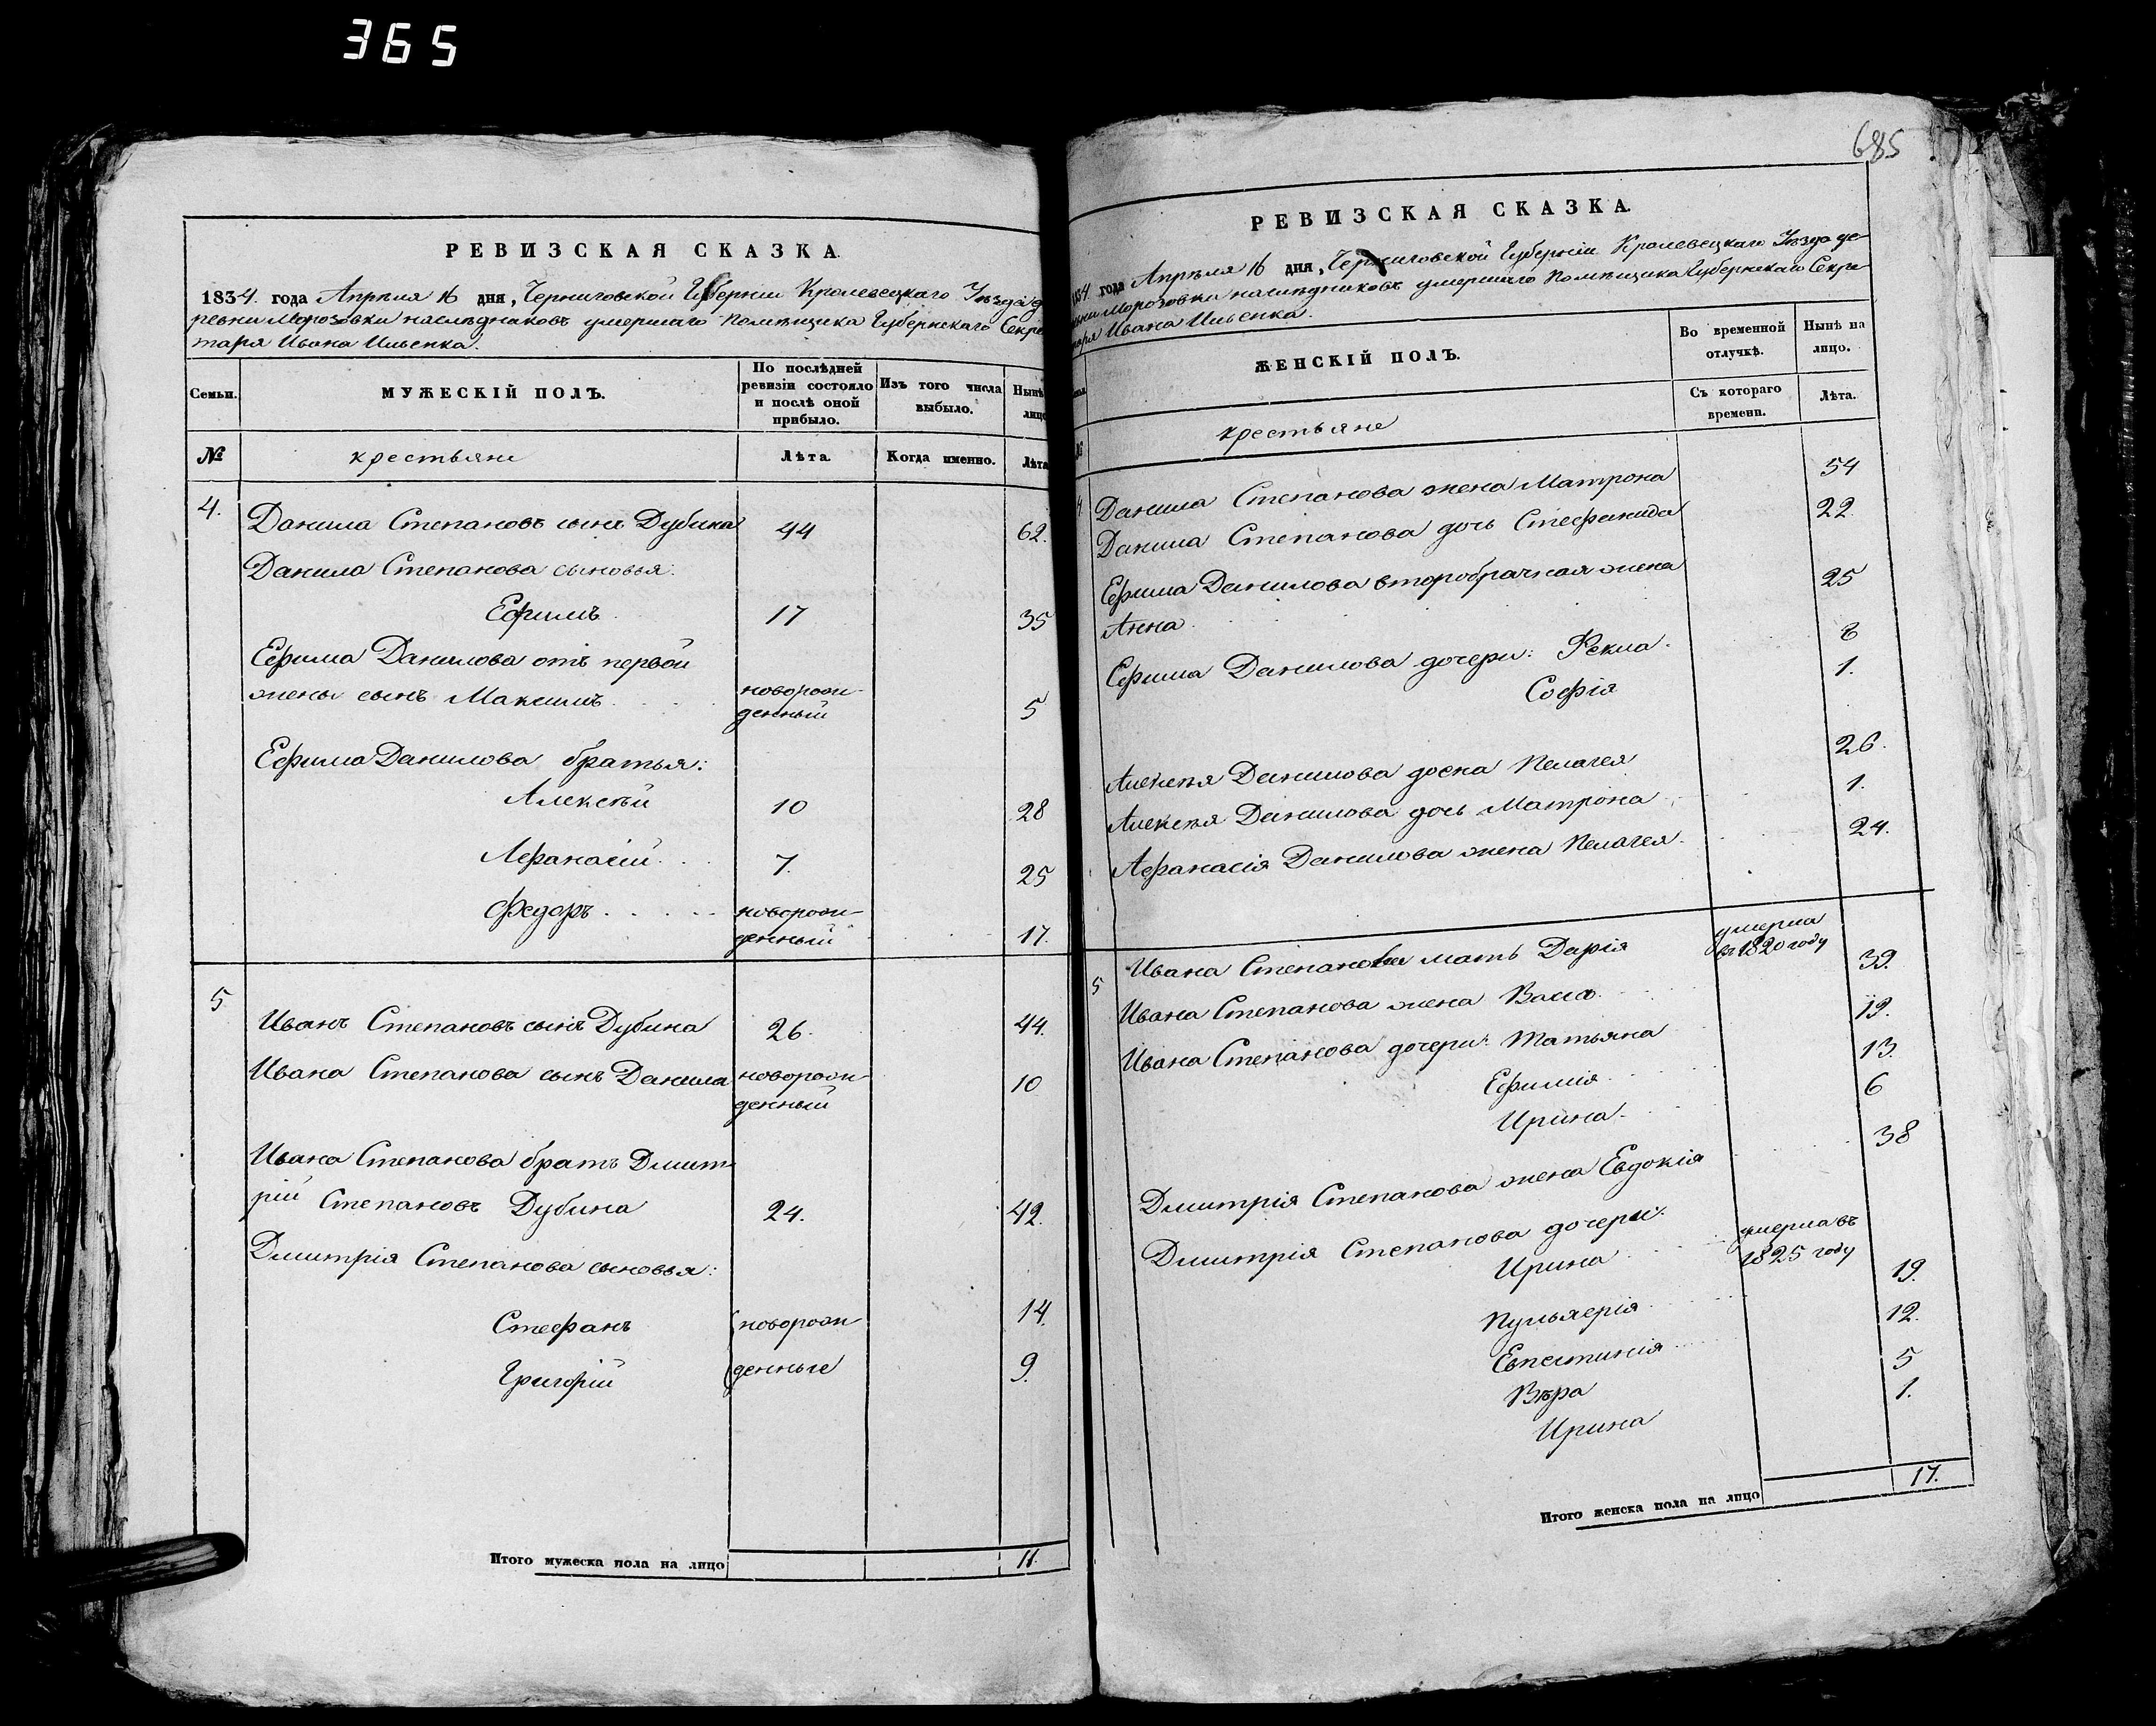 365
РЕВИЗСКАЯ СКАЗКА.
1834. года Апрѣля 16 дня, Черниговской Губерніи Кролевецкаго Уѣзда де
ревни Морозовки наслѣдниковъ умершаго помѣщика Губернскаго Секре
таря Ивана Ильенка.
Семьи. МУЖЕСКІЙ ПОЛЪ. По послѣдней ревизіи состояло и послѣ оной прибыло. Изъ того числа выбыло. Нынѣ лицо
№ крестьяне Лѣта. Когда именно. Лѣта
4. Данила Степановъ сынъ Дубина 44 62.
Данила Степанова сыновья:
Ефимъ 17 35
Ефима Данилова отъ первой
жены сынъ Максимъ новорож-
денный 5
Ефима Данилова братья:
Алексѣй 10 28
Афанасій 7. 25
Федоръ новорож-
денный 17.
5 Иванъ Степановъ сынъ Дубина 26. 44.
Ивана Степанова сынъ Данила новорож-
денный 10
Ивана Степанова братъ Дмит-
рій Степановъ Дубина 24. 42.
Дмитрія Степанова сыновья:
Стефанъ новорож 14.
Григорій денные 9.
Итого мужеска пола на лицо 11.
685
РЕВИЗСКАЯ СКАЗКА.
1834. года Апрѣля 16 дня, Черниговской Губерніи Кролевецкаго Уѣзда де-
ревни Морозовки наслѣдниковъ умершаго помѣщика Губернскаго Секре
таря Ивана Ильенка.
ЖЕНСКІЙ ПОЛЪ. Во временной отлучкѣ. Нынѣ на лицо.
Съ котораго времени. Лѣта.
№ крестьяне
4 Данила Степанова жена Матрона 54
Данила Степанова дочь Стефанида 22.
Ефима Данилова второбрачная жена
Анна 25
Ефима Данилова дочери: Фекла. 8
Софія 1.
Алексѣя Данилова жена Пелагея 26.
Алексѣя Данилова дочь Матрона 1.
Афанасія Данилова жена Пелагея 24.
5 Ивана Степанова мать Дарія умерла
въ 1820 году
Ивана Степанова жена Васса 39.
Ивана Степанова дочери: Татьяна 19.
Ефимія 13.
Ирина 6
Дмитрія Степанова жена Евдокія 38
Дмитрія Степанова дочери:
Ирина умерла въ
1825 году
Пульхерія 19.
Евпестинія 12.
Вѣра 5
Ирина 1.
Итого женска пола на лицо 17.